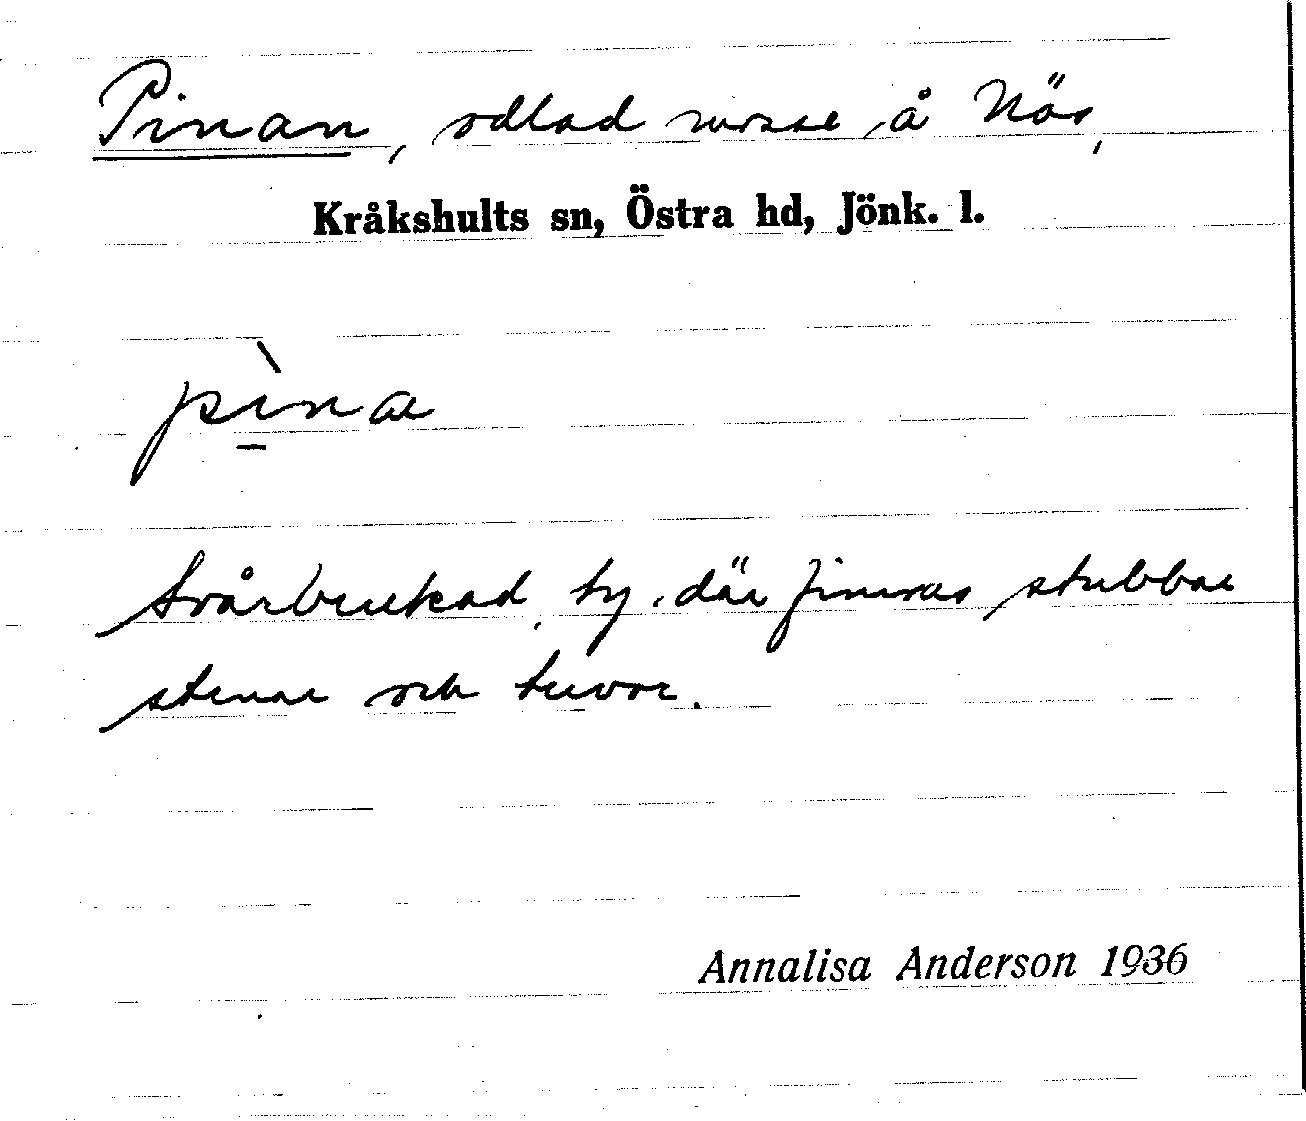 Pinan, odlad mosse å Näs,
Kråkshults sn, Östra hd, Jönk. l.
pìna
Svårbrukad, ty där finnas stubbar
stenar och tuvor.
Annalisa Anderson 1936